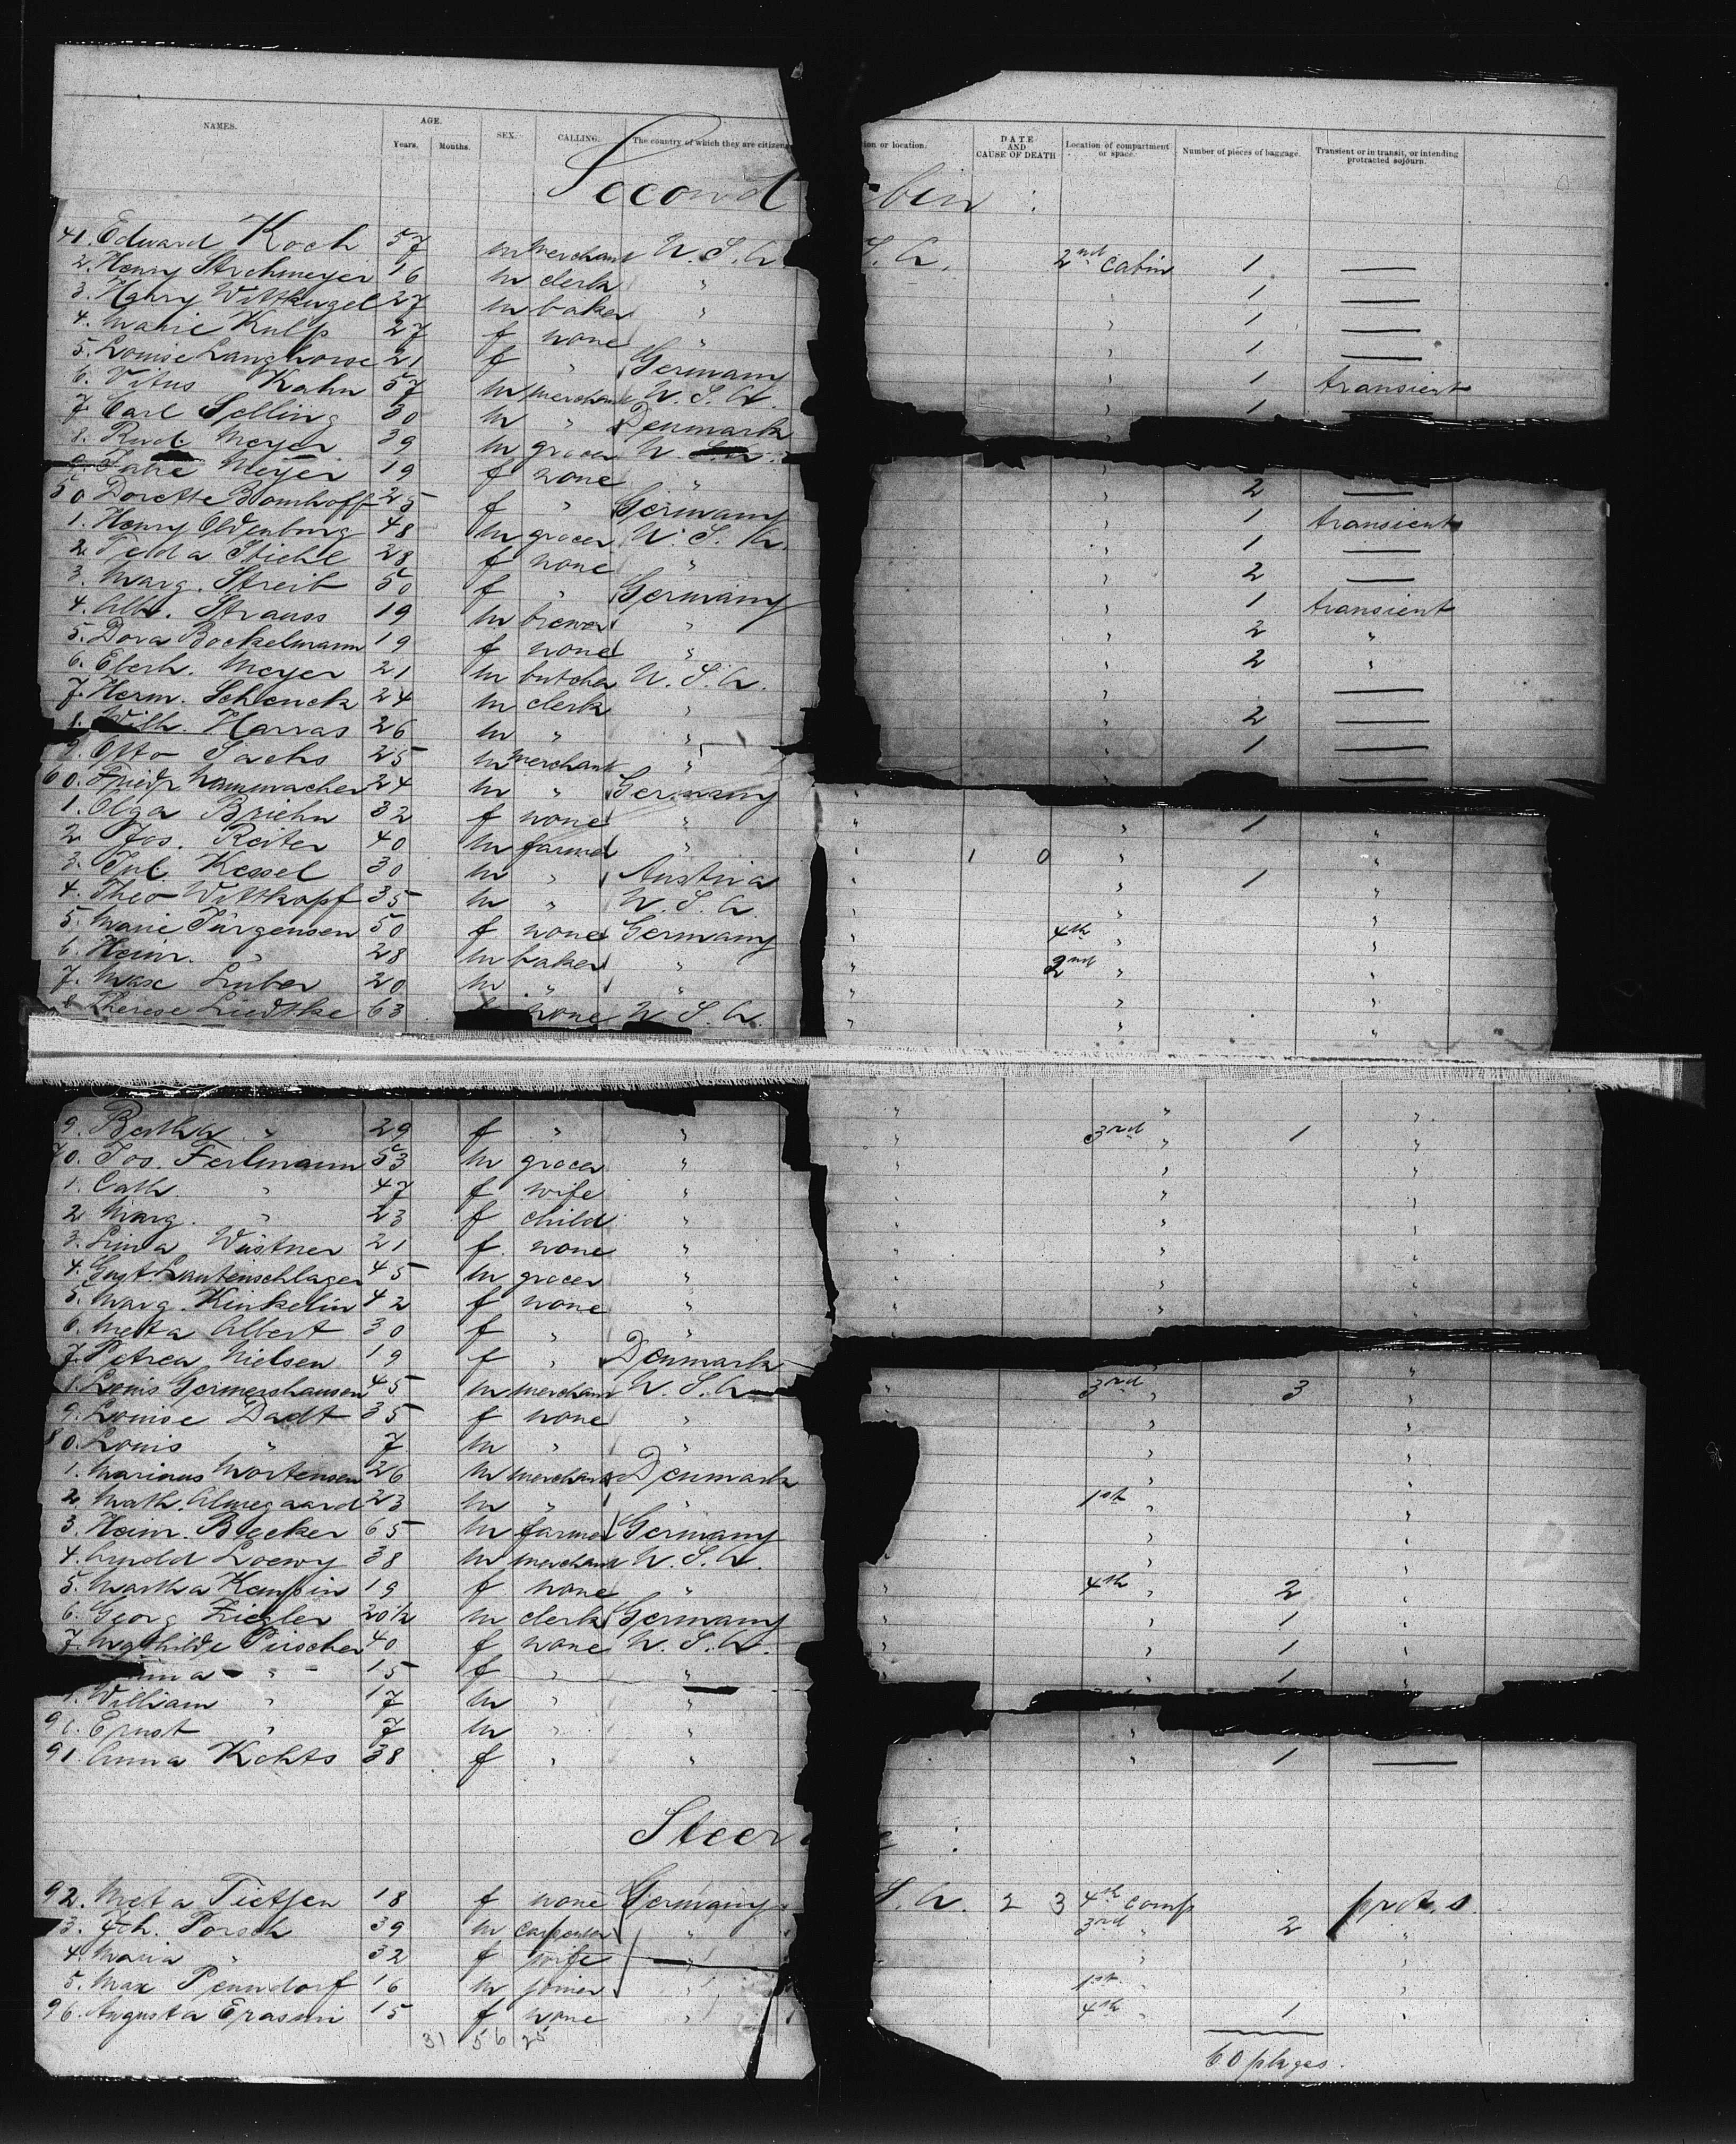 NAMES. AGE. Years. Months. SEX. CALLING. The country of which they are citizens ion or location. DATE AND CAUSE OF DEATH Location of compartment or space. Number of pieces of baggage. Transient or in transit, or intending protracted sojourn.
Second bin :
41. Edward Koch 57 m merchant U. S. A. S. A. 2nd Cabin 1 —
2. Henry Strohmeyer 16 m clerk " " 1 —
3. Harry Wittkugel 27 m baker " " 1 —
4. Marie Kulp 27 f none " " 1 —
5. Louise Langhorse 21 f " Germany " 1 transient
6. Vitus Kahn 57 m merchant U. S. A. " 1 —
7. Carl Selling 30 m " Denmark "
8. Rud. Meyer 39 m grocer U. S. A. "
9. Meyer 19 f none " " 2 —
50 Dorette Bomhoff 25 f " Germany " 1 transient
1. Henry Oldenburg 48 m grocer U. S. A. " 1 —
2. Feda Stiehl 28 f none " " 2 —
3. Marg. Streib 50 f " Germany " 1 transient
4. Alb. Strauss 19 m brewer " " 2 "
5. Dora Bockelmann 19 f none " " 2 "
6. Eberh. Meyer 21 m butcher U. S. A. " —
7. Herm. Schenck 24 m clerk " " 2 —
Wilh. Harras 26 m " " " 1 —
9. Otto Sachs 25 m merchant " —
60. Friedr. Hammacher 24 m " Germany "
1. Olga Briehn 32 f none " " " 1 "
2. Jos. Reiter 40 m farmer " " 1 0 " "
3. Jul. Kessel 30 m " Austria " " 1 "
4. Theo Wittkopf 35 m " U. S. A. " " "
5. Marie Jürgensen 50 f none Germany " 4th " "
6. Heinr. " 28 m baker " " 2nd " "
7. Max Huber 20 m " " " " "
8. Therese Liedtke 63 f none U. S. A. " " "
9. Bertha " 29 f " " " " "
70. Jos. Ferlmann 53 m grocer " " 3rd " 1 "
1. Cath. " 47 f wife " " " "
2. Marg. " 23 f child " " " "
3. Lina Wüstner 21 f none " " " "
4. Gust. Lautenschlager 45 m grocer " " " "
5. Marg. Kinkelin 42 f none " " " "
6. Meta Albert 30 f " " " " "
7. Petrea Nielsen 19 f " Denmark " "
8. Louis Germershausen 45 m merchant U. S. A. " 3rd " 3 "
9. Louise Dadt 35 f none " " "
80. Louis " 7 m " " " "
1. Marinus Mortensen 26 m merchant Denmark " "
2. Math. Almegaard 23 m " " 1st " "
3. Heinr. Becker 65 m farmer Germany " "
4. Arnold Loewy 38 m merchant U. S. A. " "
5. Martha Kempin 19 f none " " 4th " 2 "
6. Georg Ziegler 20 1/2 m clerk Germany " " 1 "
7. Mathilde Pirscher 40 f none U. S. A. " " 1 "
" 15 f " " " 1 "
9. William " 17 m " "
90. Ernst " 7 m " " "
91. Anna Kohts 38 f " " " 1 —
Steer e :
92. Meta Tietjen 18 f none Germany S. A. 2 3 4th comp prot. s.
3. Joh. Porsch 39 m carpenter " 3rd " 2 "
4. Maria " 32 f wife " " "
5. Max Penndorf 16 m joiner " 1st " "
96. Augusta Erasmi 15 f none " 4th " 1 "
31 56 25
60 pkges.